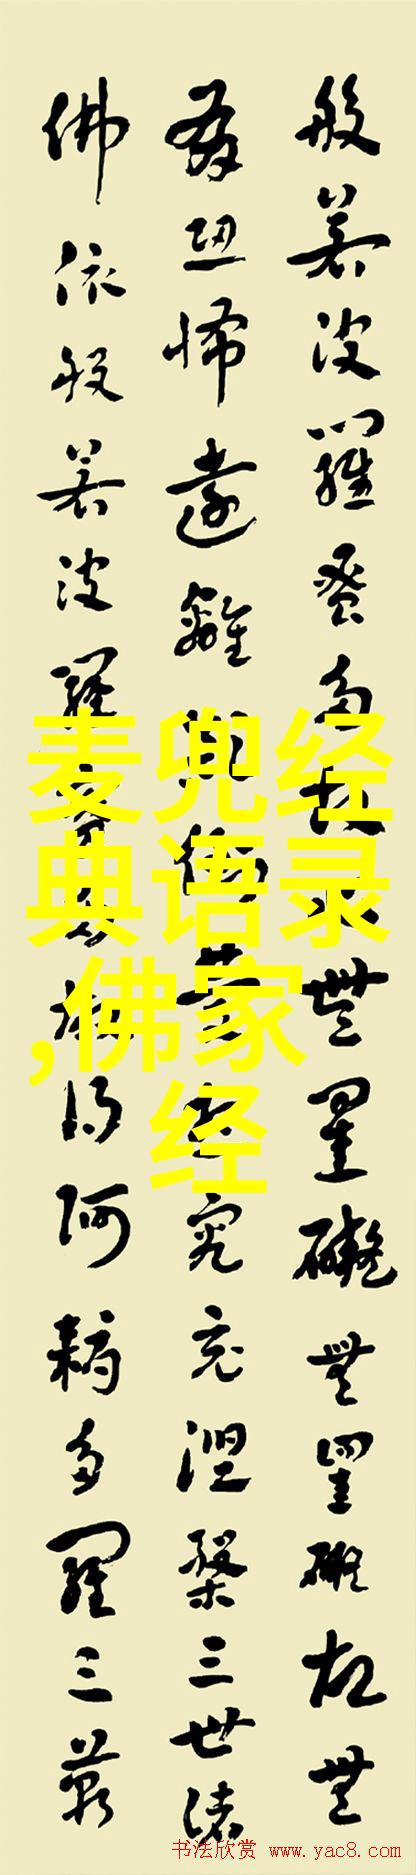 般若波羅蜜多故心無罣礙無罣礙故無
有恐怖遠離顛倒夢想究竟涅槃三世諸
佛依般若波羅蜜多故得阿耨多羅三藐
麦兜经
典语录
,佛家
经
书法欣赏 www.yac8.com